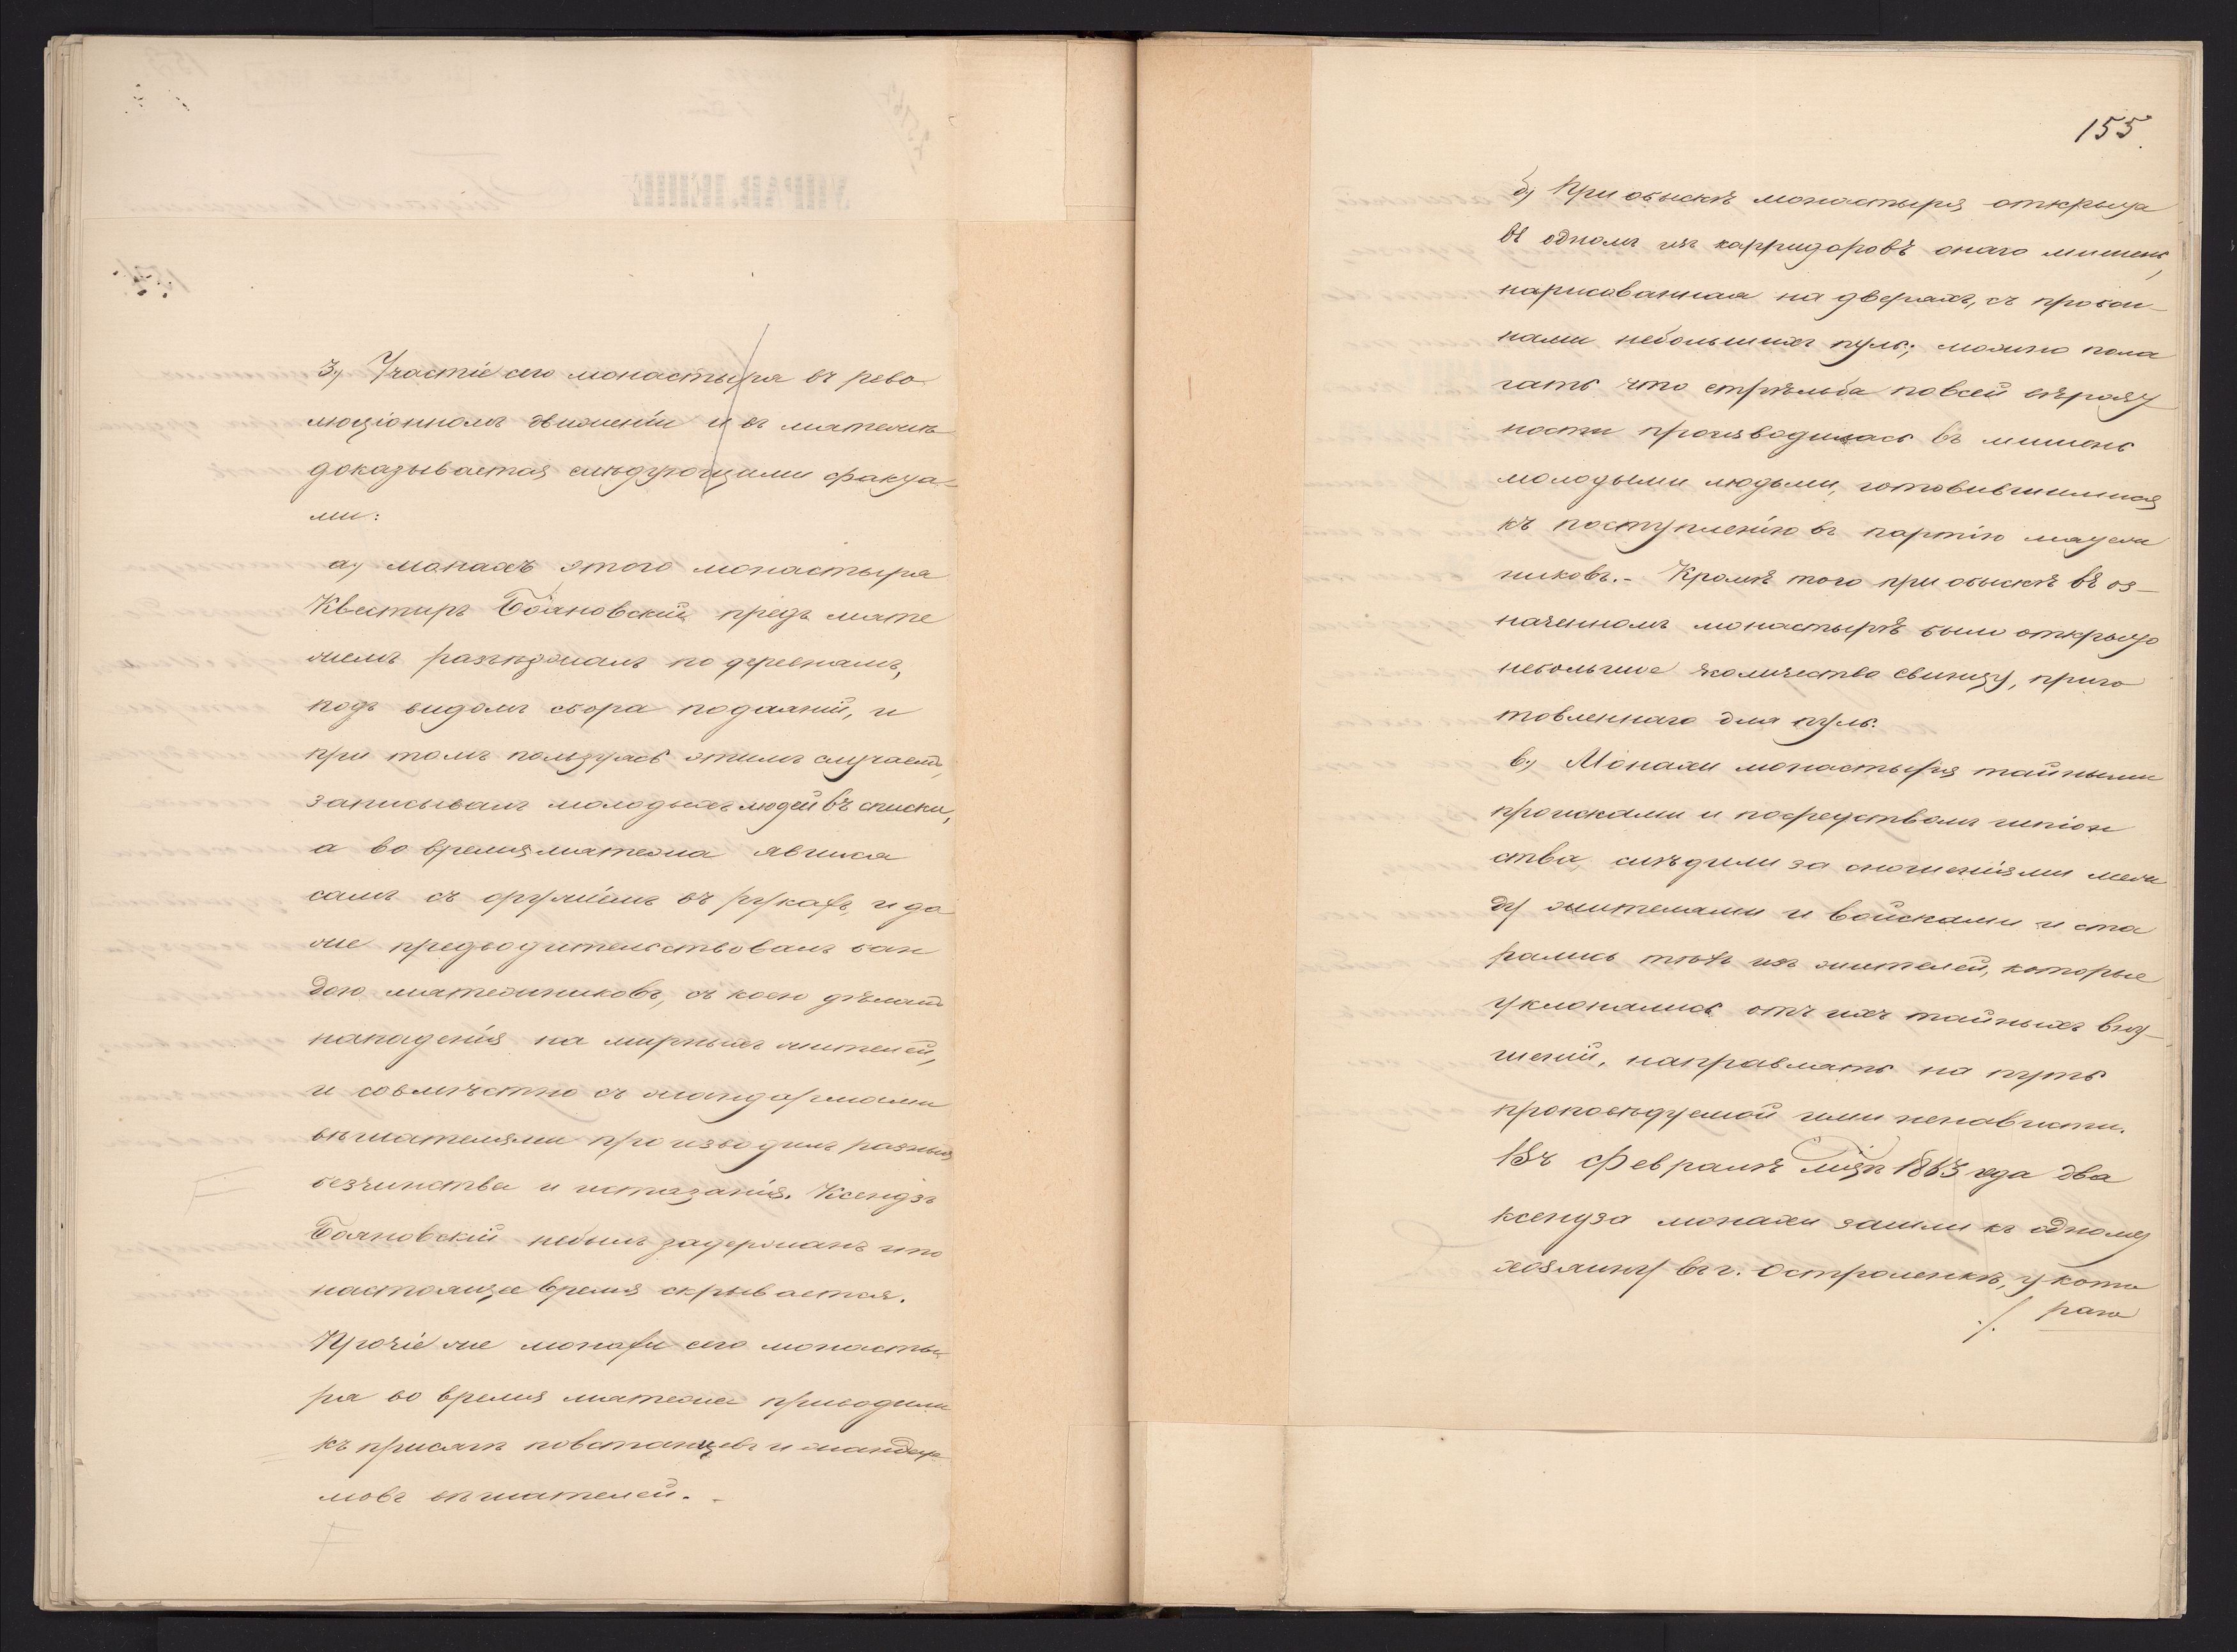 3., Участіе сего монастыря въ рево
люціонномъ движеніи и въ мятежѣ
доказывается слѣдующими факта-
ми:
а, монахъ этого монастыря
Квестиръ Бояновскій предъ мяте
жемъ разъѣзжалъ по деревнямъ,
подъ видомъ сбора подаяній, и
при томъ пользуясь этимъ случаемъ,
записывалъ молодыхъ людей въ списки,
а во время мятежа явился
самъ съ оружіемъ въ рукахъ, и да
же предводительствовалъ бан
дою мятежниковъ, съ коею дѣлалъ
нападенія на мирныхъ жителей,
и совмѣстно съ жандармами
вѣшателями производилъ разныя
безчинства и истязанія. Ксендзъ
Бояновскій небылъ задержанъ и по
настоящее время скрывается.
Прочіе же монахи сего монасты
ря во время мятежа приводили
къ присягѣ повстанцевъ и жандар
мовъ вѣшателей.-
155.
б, При обыскѣ монастыря открыта
въ одномъ изъ карридоровъ онаго мишень,
нарисованная на дверяхъ, съ пробои-
нами небольшихъ пуль; можно пола
гать что стрѣльба по всей вѣроят
ности производилась въ мишень
молодыми людьми, готовившимися
къ поступленію въ партію мятеж
никовъ.- Кромѣ того при обыскѣ въ оз-
наченномъ монастырѣ было открыто
небольшое количество свинцу, приго
товленнаго для пуль.
в, Монахи монастыря тайными
происками и посредствомъ шпіон
ства слѣдили за сношеніями меж
ду жителями и войсками и ста
рались тѣхъ изъ жителей, которые
уклонялись отъ ихъ тайныхъ вну-
шеній, направлять на путь
проповѣдуемой ими ненависти.
Въ Февралѣ мцѣ 1863 года два
ксендза монахи зашли къ одному
хозяину въ г. Остроленкѣ, у кото
./. раго